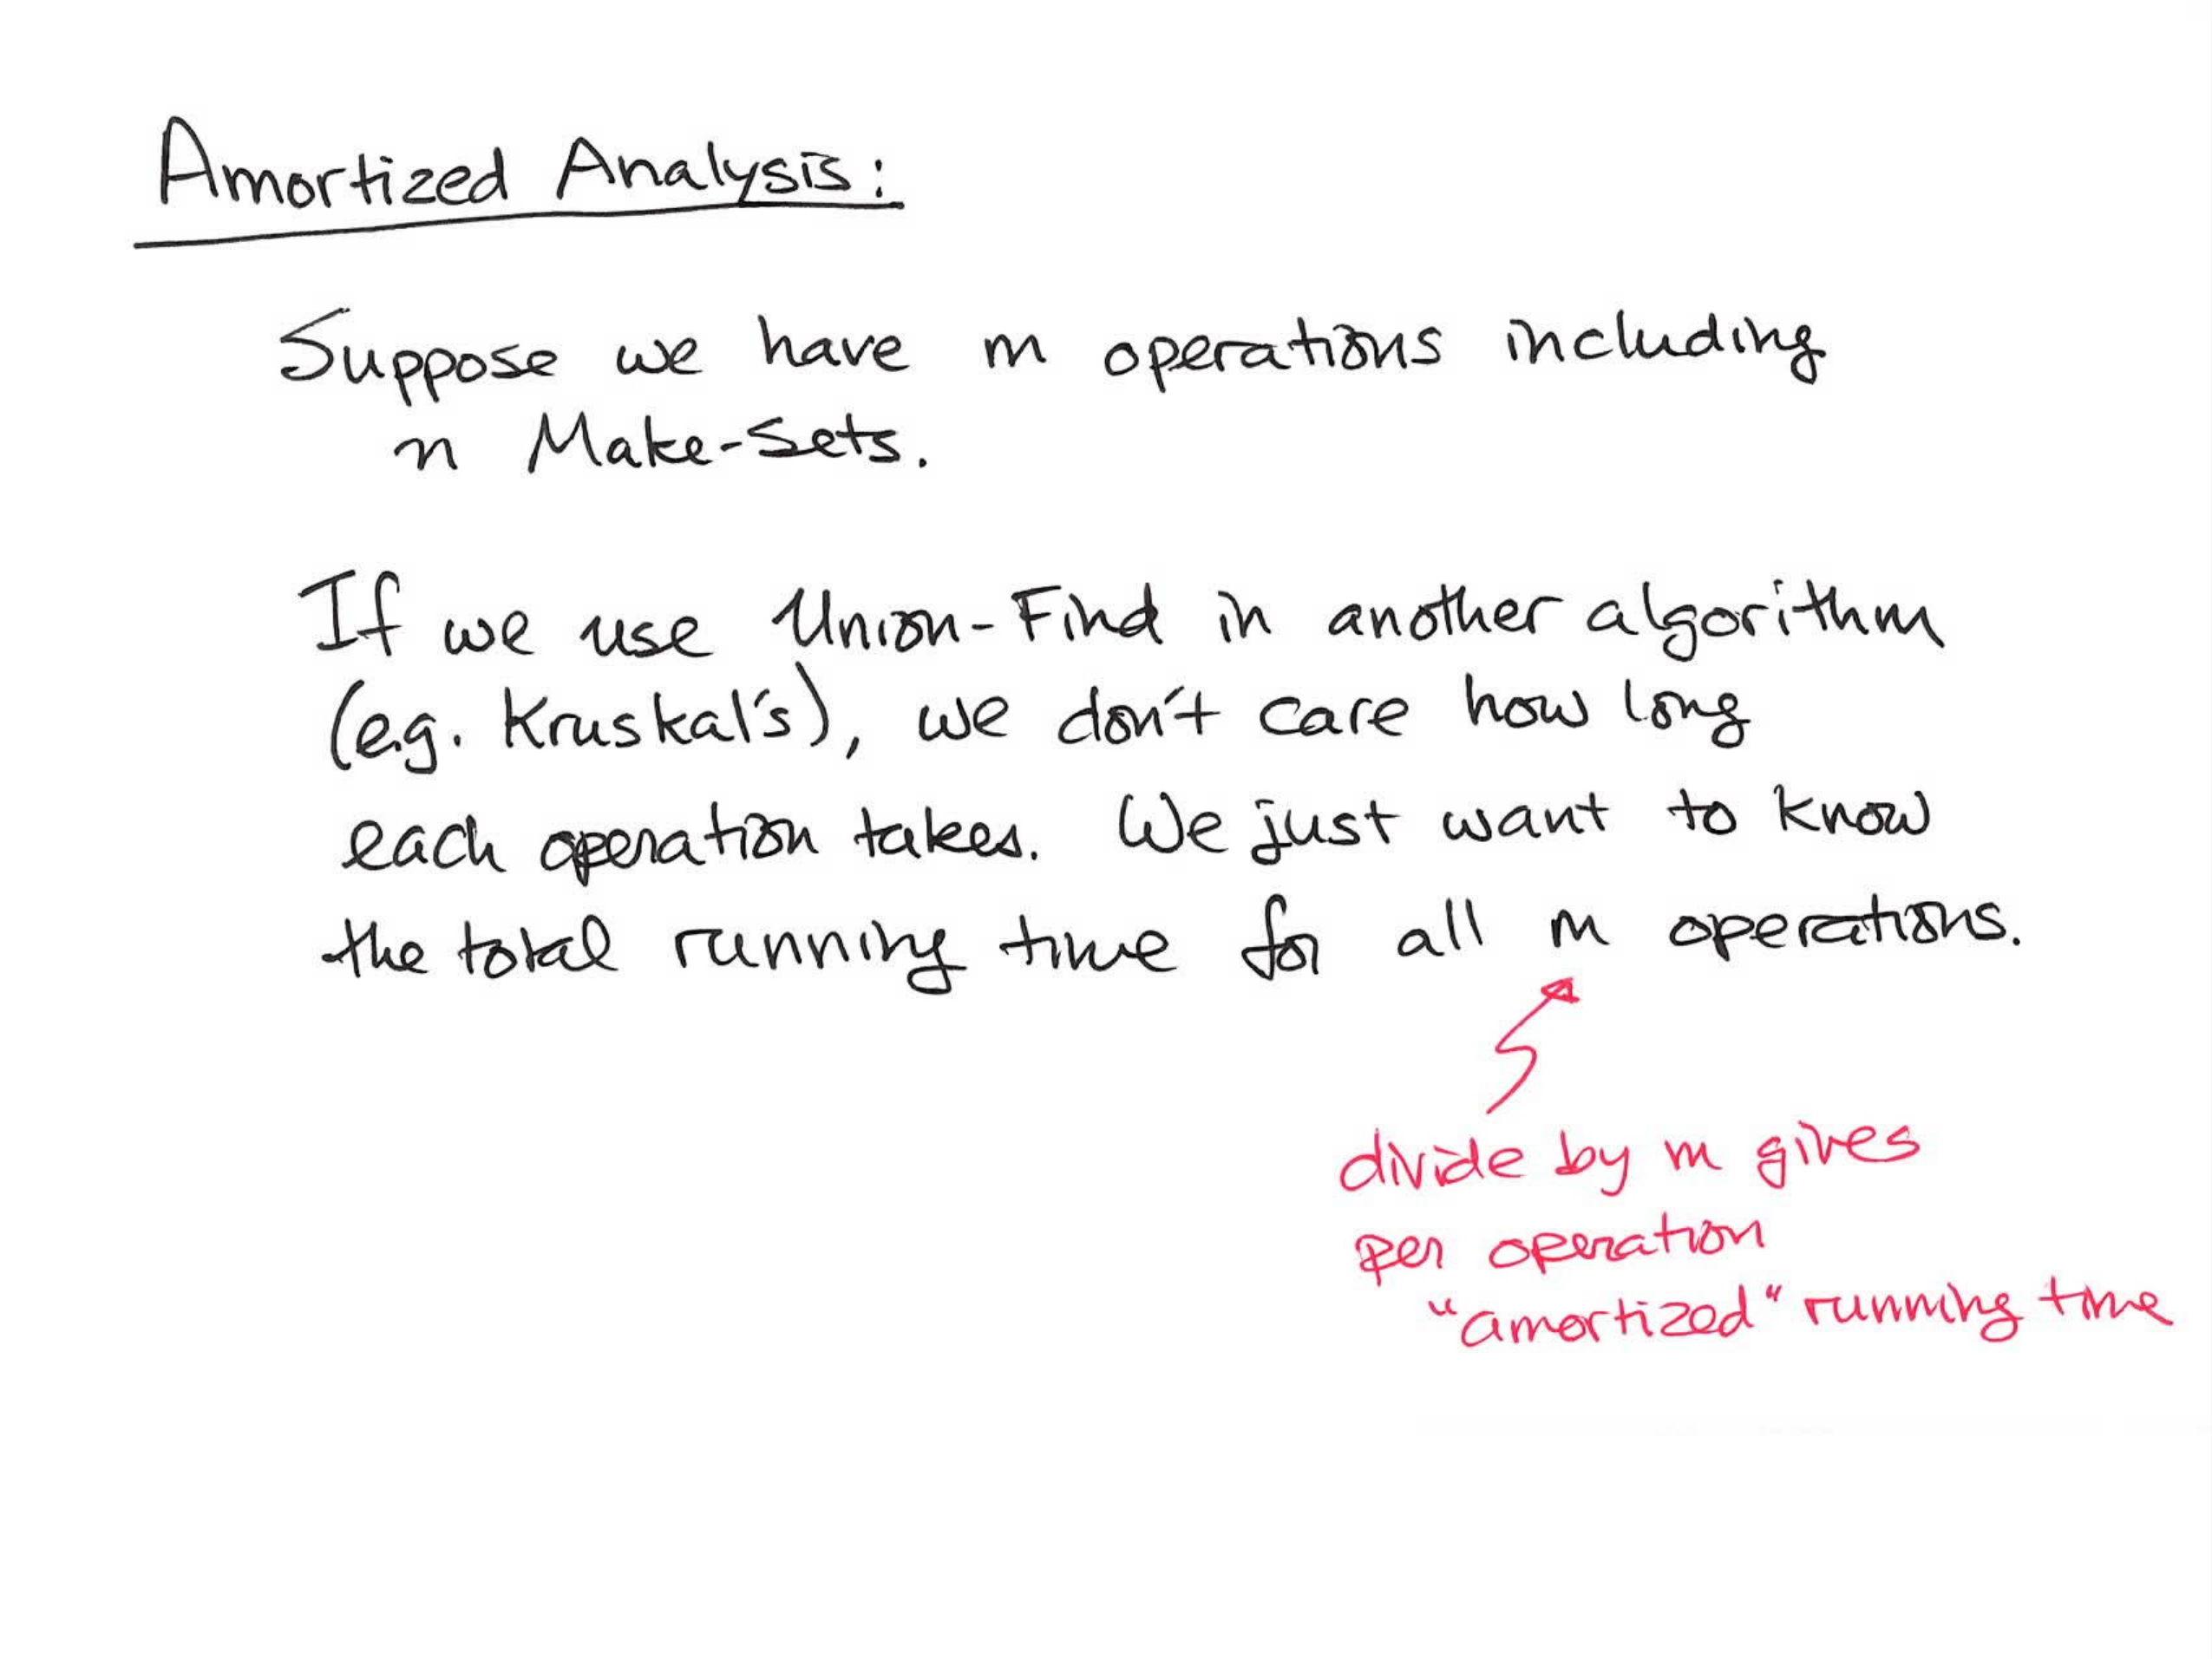 Amortized Analysis:
Suppose we have m operations including
n Make-Sets.
If we use Union-Find in another algorithm
(e.g. Kruskal's), we don't care how long
each operation takes. We just want to know
the total running time for all m operations.
divide by m gives
per operation
"amortized" running time